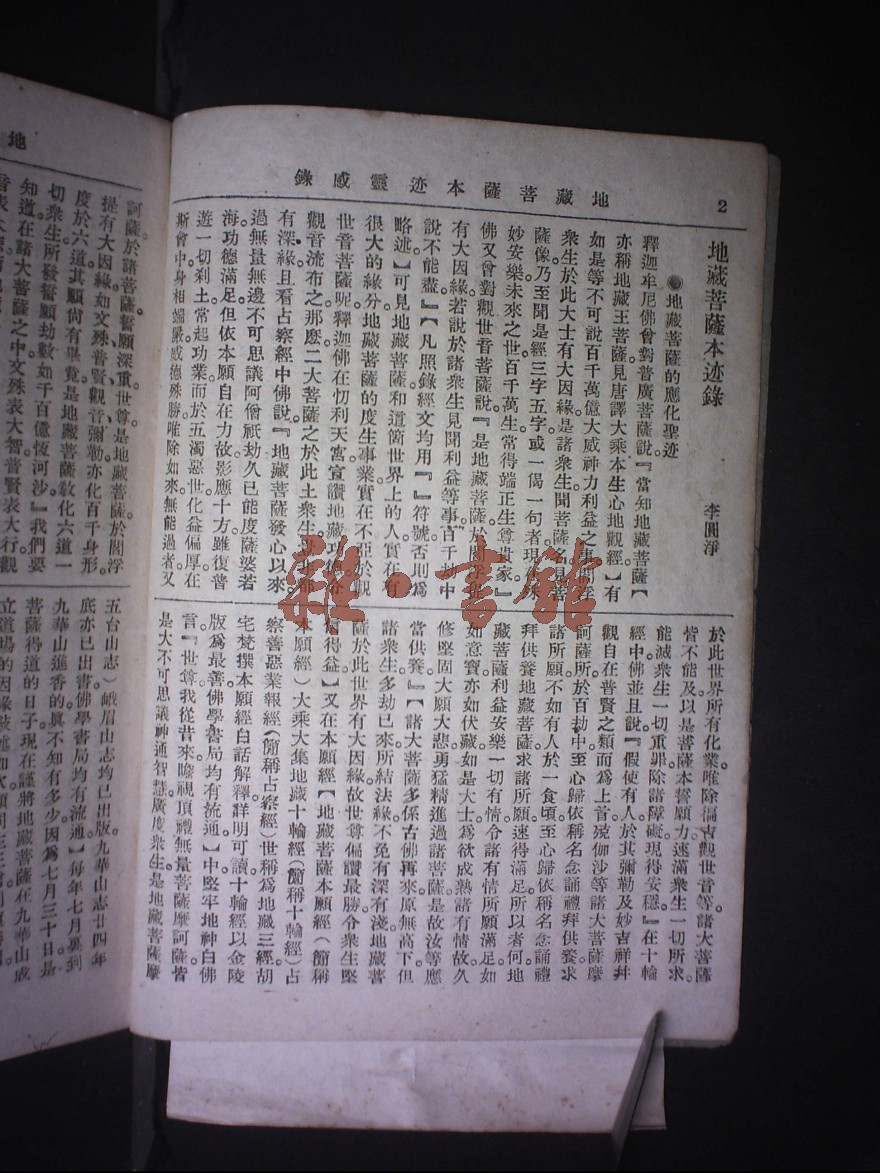 2
地藏菩薩本迹靈感錄
地藏菩薩本迹錄
李圓淨
●地藏菩薩的應化聖迹
釋迦牟尼佛曾對普廣菩薩說。『當知地藏菩薩【
亦稱地藏王菩薩見唐譯大乘本生心地觀經】有
如是等不可說百千萬億大威神力利益之事。閻浮
衆生於此大士有大因緣。是諸衆生聞菩薩名見菩
薩像。乃至聞是經三字五字或一偈一句者。現在殊
妙安樂。未來之世百千萬生常得端正生尊貴家。』
佛又曾對觀世音菩薩說。『是地藏菩薩於閻浮提
有大因緣。若說於諸衆生見聞利益等事。百千劫中
說不能盡。』【凡照錄經文均用『』符號否則爲
略述】可見地藏菩薩和這箇世界上的人實在有
很大的緣分。地藏菩薩的度生事業實在不亞於觀
世音菩薩呢。釋迦佛在忉利天宮宣讚地藏功德
觀音流布之。那麽二大菩薩之於此土衆生
有深緣。且看占察經中佛說。『地藏菩薩發心以來
過無量無邊不可思議阿僧祇劫。久已能度薩婆若
海。功德滿足。但依本願自在力故。影應十方。雖復普
遊一切刹土。常起功業。而於五濁惡世化益偏厚。在
斯會中身相端嚴。威德殊勝。唯除如來無能過者。又
於此世界所有化業。唯除徧吉觀世音等。諸大菩薩
皆不能及。以是菩薩本誓願力。速滿衆生一切所求。
能滅衆生一切重罪。除諸障礙。現得安穩。』在十輪
經中佛並且說。『假使有人於其彌勒及妙吉祥并
觀自在普賢之類而爲上首。殑伽沙等諸大菩薩摩
訶薩所。於百劫中至心歸依稱名念誦禮拜供養。求
諸所願。不如有人於一食頃至心歸依稱名念誦禮
拜供養地藏菩薩。求諸所願速得滿足。所以者何。地
藏菩薩利益安樂一切有情。令諸有情所願滿足。如
如意寶。亦如伏藏。如是大士爲欲成熟諸有情故。久
修堅固大願大悲。勇猛精進過諸菩薩。是故汝等應
當供養。』【諸大菩薩多係古佛再來原無高下。但
諸衆生多劫已來所結法緣不免有深有淺。地藏菩
薩於此世界有大因緣。故世尊偏讚最勝令衆生堅
得益】又在本願經【地藏菩薩本願經(簡稱
本願經)大乘大集地藏十輪經(簡稱十輪經)占
察善惡業報經(簡稱占察經)世稱爲地藏三經胡
宅梵撰本願經白話解釋詳明可讀十輪經以金陵
版爲最善佛學書局均有流通】中堅牢地神白佛
言。『世尊我從昔來。瞻視頂禮無量菩薩摩訶薩。皆
是大不可思議神通智慧。廣度衆生。是地藏菩薩摩
地
訶薩。於諸菩薩誓願深重。世尊。是地藏菩薩於閻浮
提有大因緣。如文殊普賢觀音彌勒。亦化百千身形
度於六道。其願尚有畢竟。是地藏菩薩教化六道一
切衆生所發誓願劫數。如千百億恆河沙。』我們要
知道。在諸大菩薩之中。文殊表大智。普賢表大行。觀
五台山志)峨眉山志均已出版九華山志廿四年
底亦已出書佛學書局均有流通】每年七月裏到
九華山進香的眞不知有多少。因爲七月三十日是
菩薩得道的日子。現在謹將地藏菩薩在九華山成
雜·書館